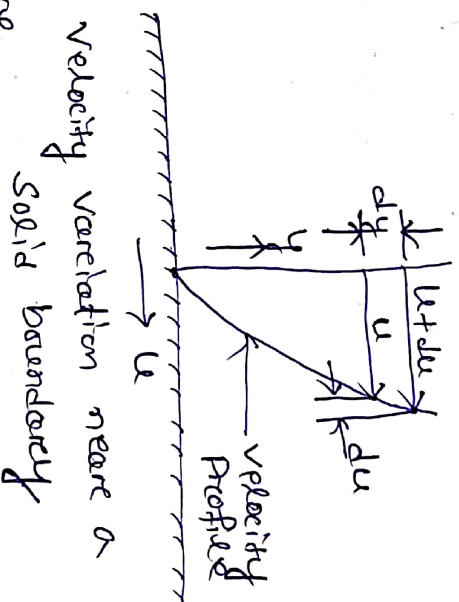 u+du
dy
u
y
du
velocity
Profiled
u
velocity vareiation neare a
Solid boundarcy